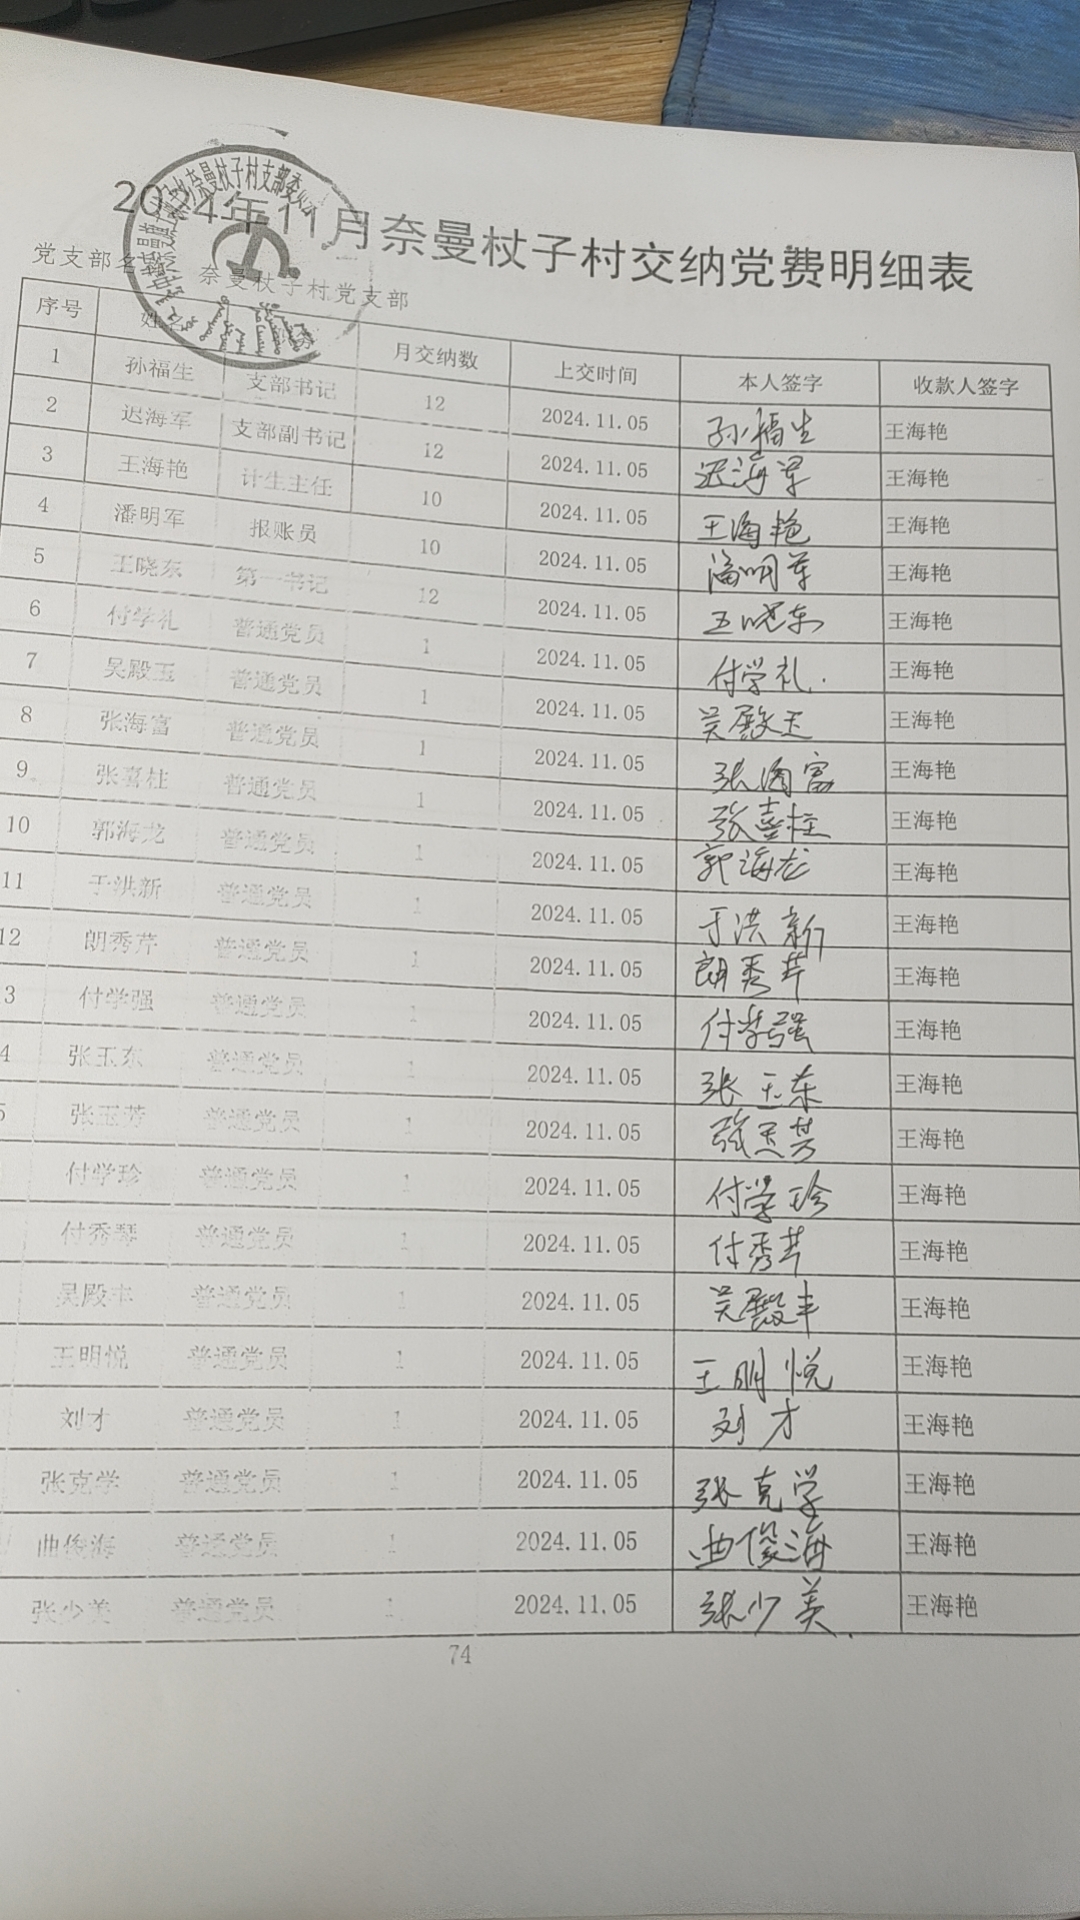 2024年11月奈曼杖子村交纳党费明细表
党支部名称 奈曼杖子村党支部
序号 姓名 职务 月交纳数 上交时间 本人签字 收款人签字
1 孙福生 支部书记 12 2024.11.05 孙福生 王海艳
2 迟海军 支部副书记 12 2024.11.05 迟海军 王海艳
3 王海艳 计生主任 10 2024.11.05 王海艳 王海艳
4 潘明军 报账员 10 2024.11.05 潘明军 王海艳
5 王晓东 第一书记 12 2024.11.05 王晓东 王海艳
6 付学礼 普通党员 1 2024.11.05 付学礼 王海艳
7 吴殿玉 普通党员 1 2024.11.05 吴殿玉 王海艳
8 张海富 普通党员 1 2024.11.05 张海富 王海艳
9 张喜柱 普通党员 1 2024.11.05 张喜柱 王海艳
10 郭海龙 普通党员 1 2024.11.05 郭海龙 王海艳
11 于洪新 普通党员 1 2024.11.05 于洪新 王海艳
12 朗秀芹 普通党员 1 2024.11.05 朗秀芹 王海艳
3 付学强 普通党员 1 2024.11.05 付学强 王海艳
4 张玉东 普通党员 1 2024.11.05 张玉东 王海艳
5 张玉芳 普通党员 1 2024.11.05 张玉芳 王海艳
付学珍 普通党员 1 2024.11.05 付学珍 王海艳
付秀琴 普通党员 1 2024.11.05 付秀芹 王海艳
吴殿丰 普通党员 1 2024.11.05 吴殿丰 王海艳
王明悦 普通党员 1 2024.11.05 王明悦 王海艳
刘才 普通党员 1 2024.11.05 刘才 王海艳
张克学 普通党员 1 2024.11.05 张克学 王海艳
曲俊海 普通党员 1 2024.11.05 曲俊海 王海艳
张少美 普通党员 1 2024.11.05 张少美 王海艳
74